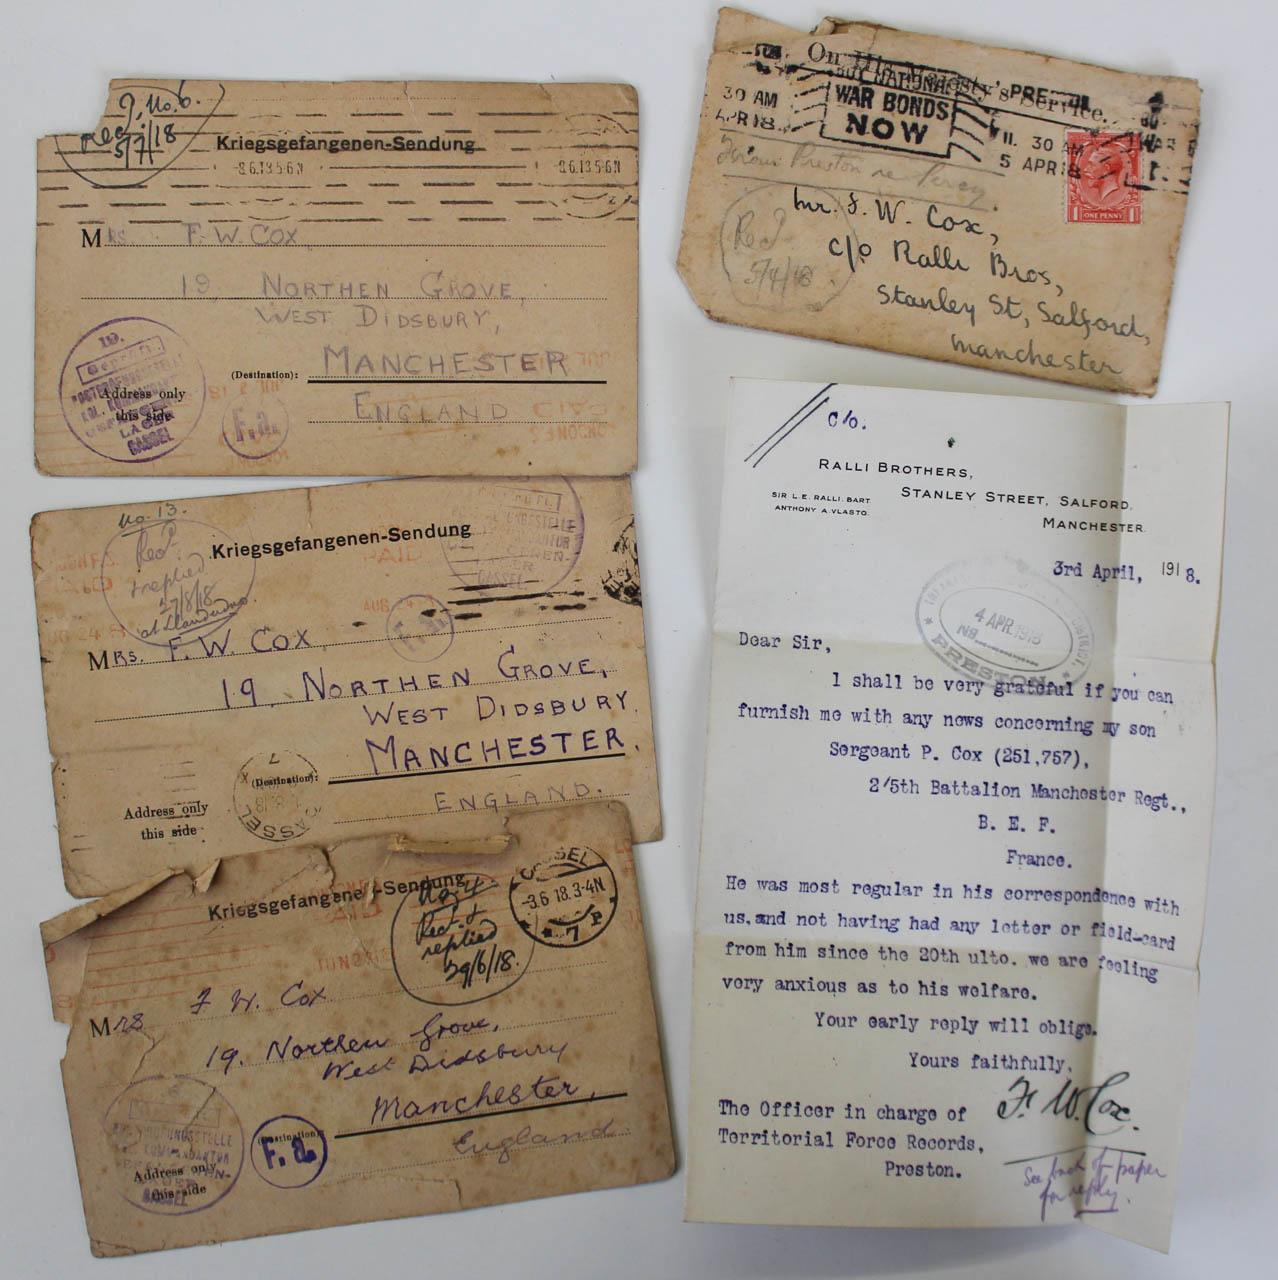 No. 6.
Rec
5/7/18
Kriegsgefangenen-Sendung
8.6.18 5-6 N
8.6.18 5-6 N
Mrs F. W. Cox,
19, Northen Grove,
West Didsbury,
(Destination): Manchester
England
Address only
this side
Geprüft
Lager
Cassel
F.a.
No. 13.
Recd
& replied
27/8/18
at Llandudno.
Kriegsgefangenen-Sendung
PAID
Cassel
F.a.
Mrs. F. W. Cox,
19, Northen Grove,
West Didsbury,
Manchester.
(Destination):
England.
Address only
this side
Cassel
Kriegsgefangene -Sendung
No. 4
Recd &
replied
29/6/18.
Cassel
-3.6 18.3-4N
* 7 P
Mrs F W. Cox
19. Northen Grove,
West Didsbury
Manchester,
(Destination):
England.
Address only
this side
Cassel
F.a.
On His Majesty's Service.
30 AM
APR 18
BUY NATIONAL
WAR BONDS
NOW
11. 30 AM
5 APR 18
ONE PENNY
From Preston re Percy
Recd
5/4/18
Mr. F. W. Cox,
c/o Ralli Bros,
Stanley St, Salford,
Manchester
c/o.
Ralli Brothers,
Sir L. E. Ralli. Bart.
Anthony A. Vlasto.
Stanley Street, Salford,
Manchester.
3rd April, 1918.
4 APR. 1918
No
* PRESTON *
Dear Sir,
I shall be very grateful if you can
furnish me with any news concerning my son
Sergeant P. Cox (251,757),
2/5th Battalion Manchester Regt.,
B. E. F.
France.
He was most regular in his correspondence with
us, and not having had any letter or field-card
from him since the 20th ulto. we are feeling
very anxious as to his welfare.
Your early reply will oblige.
Yours faithfully,
F. W. Cox.
The Officer in charge of
Territorial Force Records,
Preston.
See back of paper
for reply.